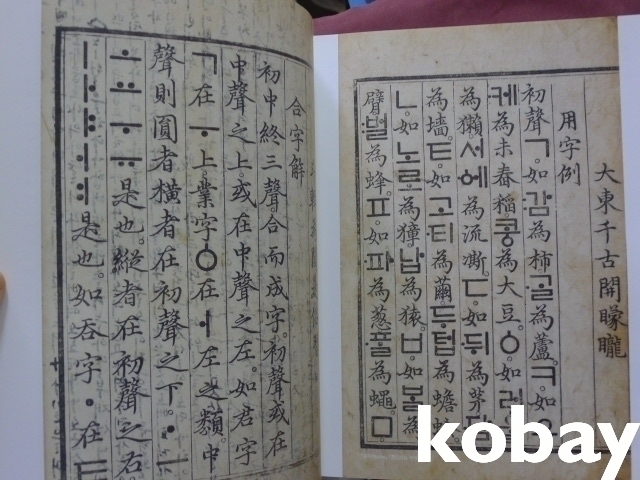 合字解
初中終三聲。合而成字。初聲或在
中聲之上。或在中聲之左。如君字
ㄱ在ㅜ上。業字ㆁ在ㅓ左之類。中
聲則圓者橫者在初聲之下。ㆍㅡ
ㅗㅛㅜㅠ是也。縱者在初聲之右。
ㅣㅏㅑㅓㅕ是也。如吞字ㆍ在ㅌ
大東千古開朦朧
用字例
初聲ㄱ。如감為柿。ᄀᆞᆯ為蘆。ㅋ。如
케為未舂稻。콩為大豆。ㆁ。如러
為獺。서에為流凘。ㄷ。如뒤為茅。담
為墻。ㅌ。如고티為繭。두텁為蟾蜍。
ㄴ。如노로為獐。납為猿。ㅂ。如ᄇᆞᆯ為
臂。벌為蜂。ㅍ。如파為葱。ᄑᆞᆯ為蠅。ㅁ。
kobay